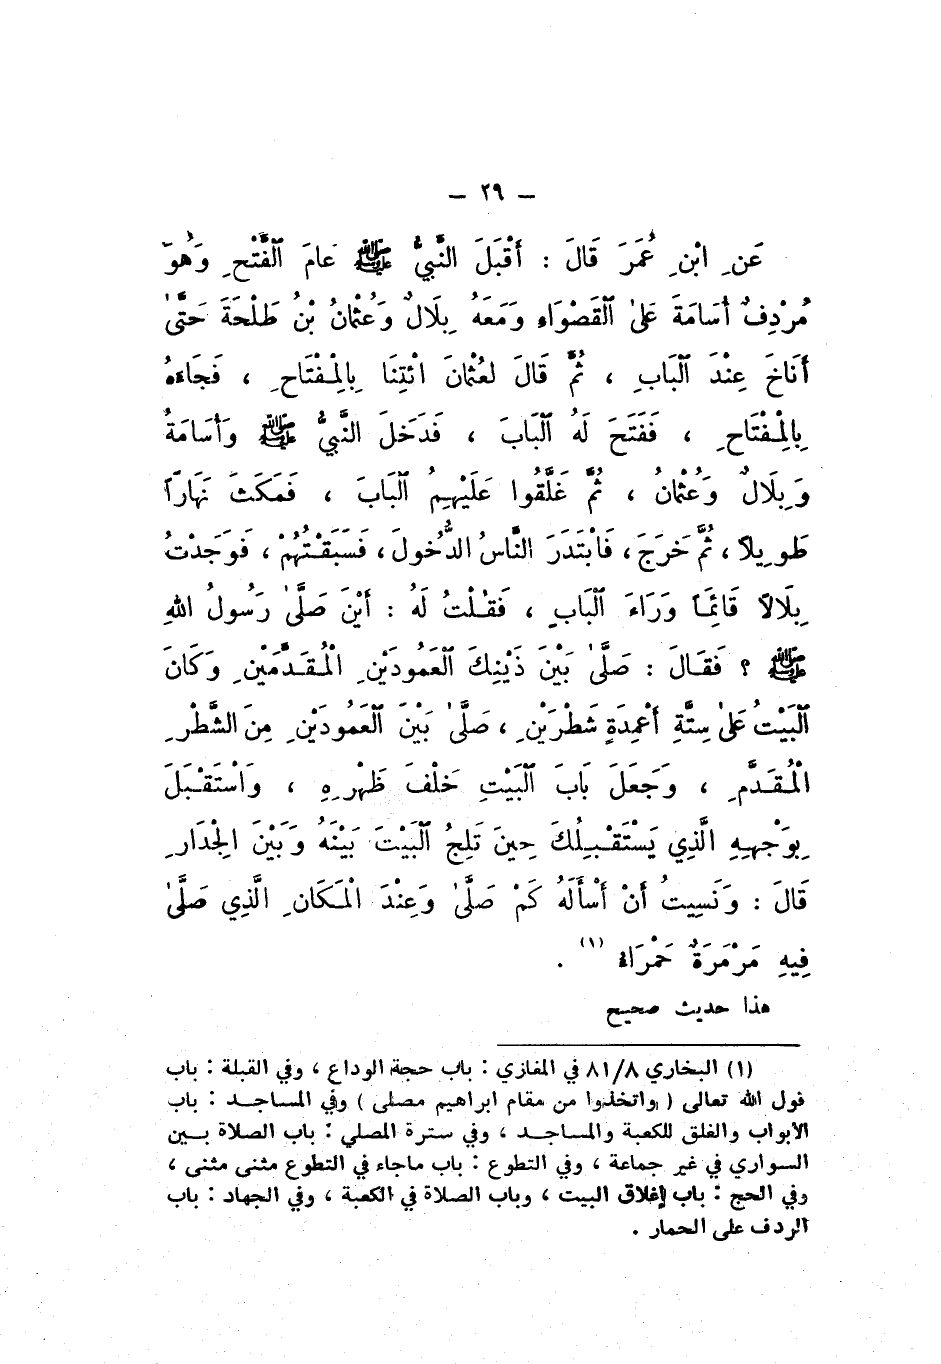 – ٢٩ –
عَنِ ابْنِ عُمَرَ قَالَ : أَقْبَلَ النَّبِيُّ ﷺ عَامَ الْفَتْحِ وَهُوَ
مُرْدِفٌ أُسَامَةَ عَلَى الْقَصْوَاءِ وَمَعَهُ بِلَالٌ وَعُثْمَانُ بْنُ طَلْحَةَ حَتَّى
أَنَاخَ عِنْدَ الْبَابِ ، ثُمَّ قَالَ لِعُثْمَانَ ائْتِنَا بِالْمِفْتَاحِ ، فَجَاءَهُ
بِالْمِفْتَاحِ ، فَفَتَحَ لَهُ الْبَابَ ، فَدَخَلَ النَّبِيُّ ﷺ وَأُسَامَةُ
وَبِلَالٌ وَعُثْمَانُ ، ثُمَّ غَلَّقُوا عَلَيْهِمُ الْبَابَ ، فَمَكَثَ نَهَارَاً
طَوِيلاً ، ثُمَّ خَرَجَ ، فَابْتَدَرَ النَّاسُ الدُّخُولَ ، فَسَبَقْتُهُمْ ، فَوَجَدْتُ
بِلَالاً قَائِمَاً وَرَاءَ الْبَابِ ، فَقُلْتُ لَهُ : أَيْنَ صَلَّى رَسُولُ اللهِ
ﷺ ؟ فَقَالَ : صَلَّى بَيْنَ ذَيْنِكَ الْعَمُودَيْنِ الْمُقَدَّمَيْنِ وَكَانَ
الْبَيْتُ عَلَى سِتَّةِ أَعْمِدَةٍ شَطْرَيْنِ ، صَلَّى بَيْنَ الْعَمُودَيْنِ مِنَ الشَّطْرِ
الْمُقَدَّمِ ، وَجَعَلَ بَابَ الْبَيْتِ خَلْفَ ظَهْرِهِ ، وَاسْتَقْبَلَ
بِوَجْهِهِ الَّذِي يَسْتَقْبِلُكَ حِينَ تَلِجُ الْبَيْتَ بَيْنَهُ وَبَيْنَ الْجِدَارِ
قَالَ : وَنَسِيتُ أَنْ أَسْأَلَهُ كَمْ صَلَّى وَعِنْدَ الْمَكَانِ الَّذِي صَلَّى
فِيهِ مَرْمَرَةٌ حَمْرَاءُ (١) .
هذا حديث صحيح
(١) البخاري ٨١/٨ في المغازي : باب حجة الوداع ، وفي القبلة : باب
قول الله تعالى ( واتخذوا من مقام ابراهيم مصلى ) وفي المساجد : باب
الأبواب والغلق للكعبة والمساجد ، وفي سترة المصلي : باب الصلاة بين
السواري في غير جماعة ، وفي التطوع : باب ماجاء في التطوع مثنى مثنى ،
وفي الحج : باب إغلاق البيت ، وباب الصلاة في الكعبة ، وفي الجهاد : باب
الردف على الحمار .